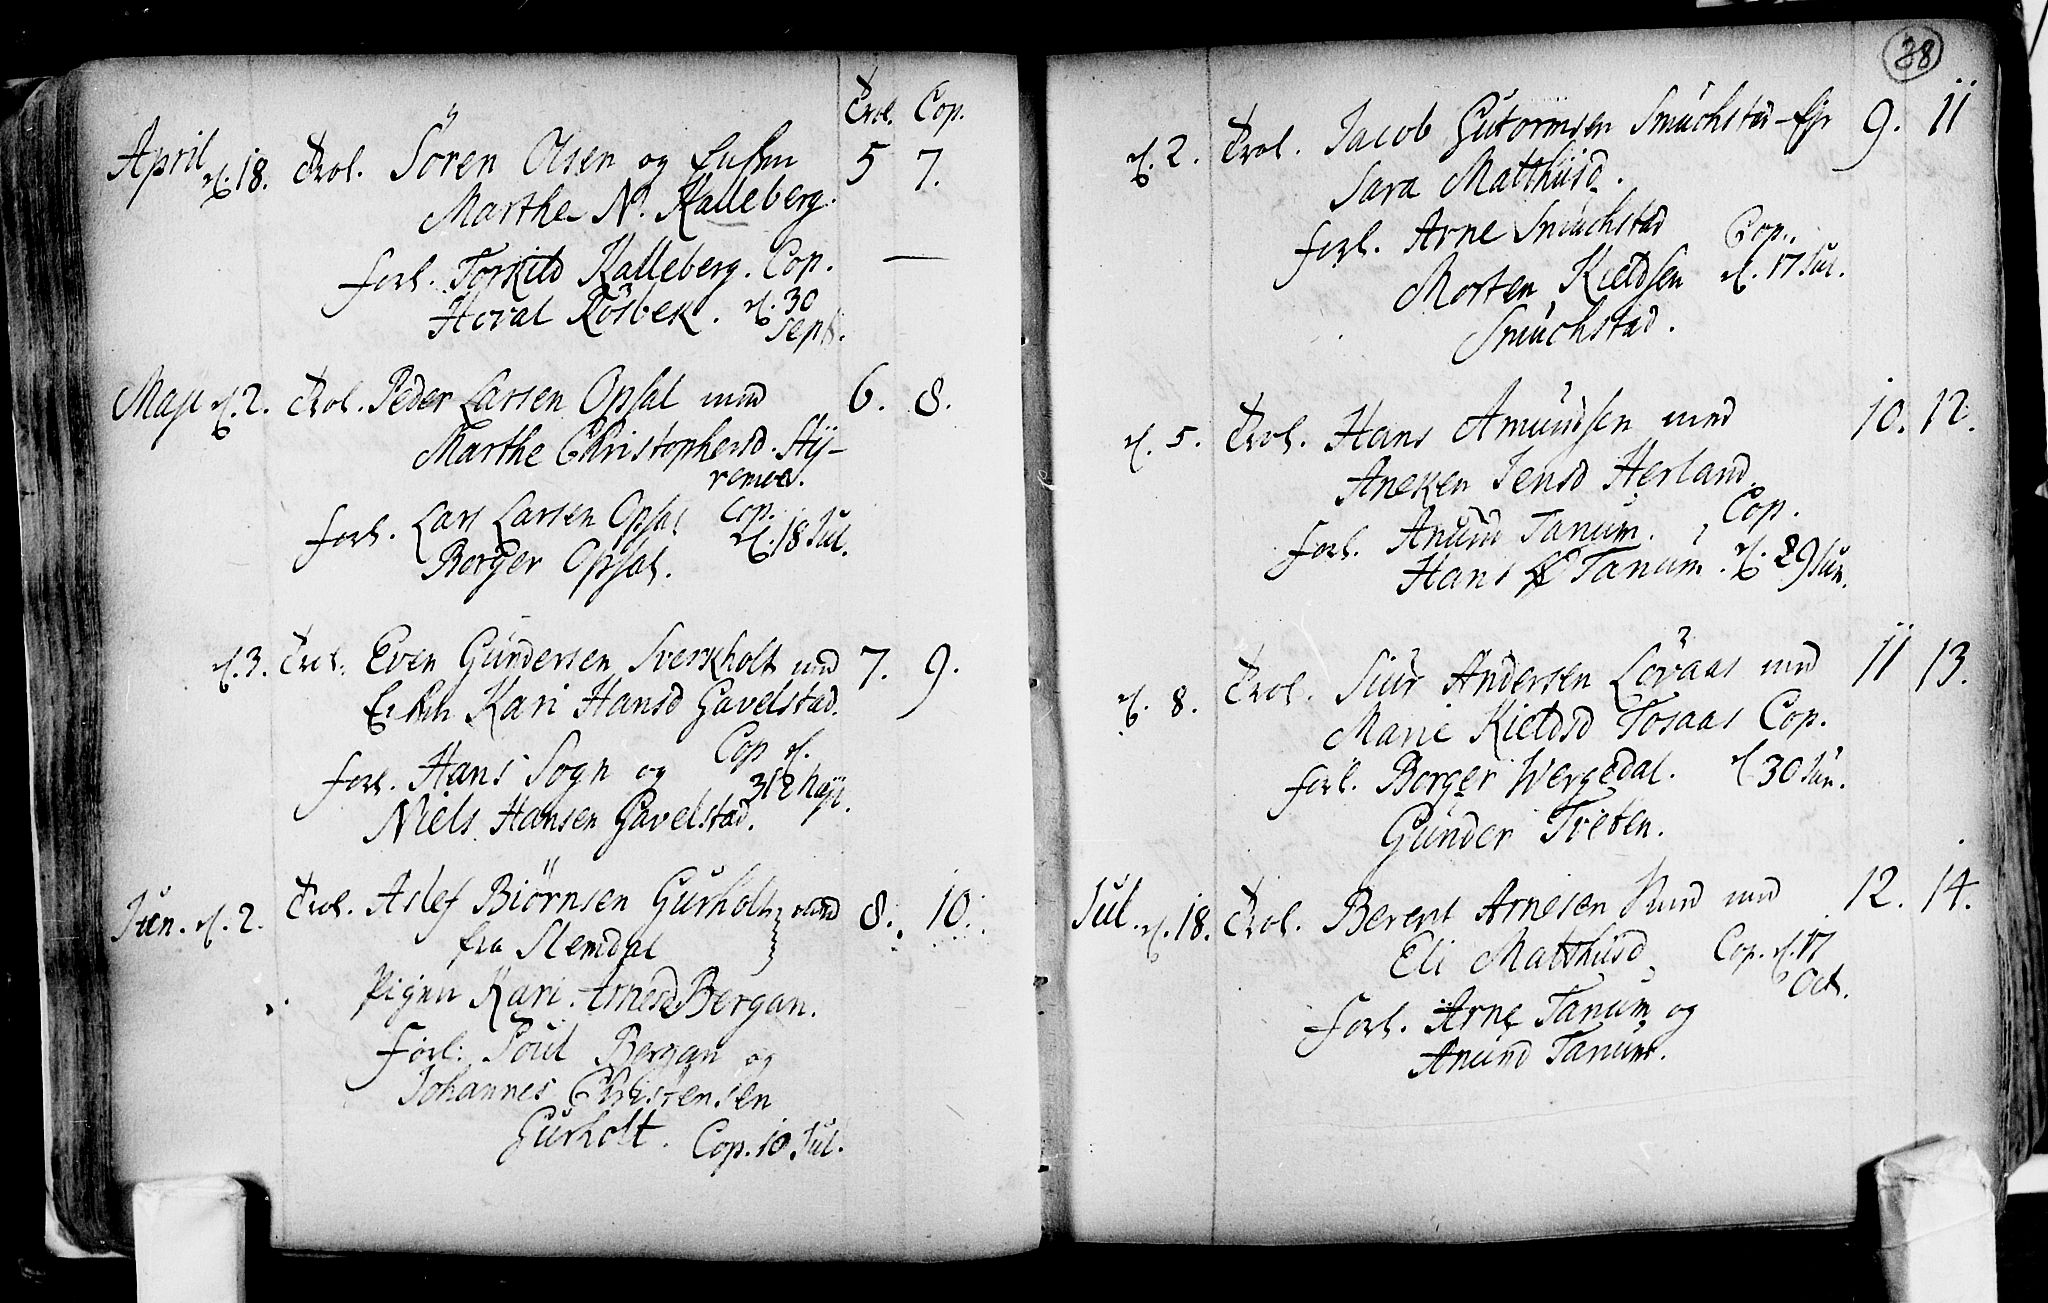 Trol. Cop.
April d. 18. Trol. Sören Olsen og Enken 5 7.
Marthe N. Kalleberg.
forl. Torkild Kalleberg. Cop. —
Hoval Rösbek. d. 30
Sept.
Maji d. 2. Trol. Peder Larsen Opsal med 6. 8.
Marthe Christophersd. Sty-
remoe.
forl. Lars Larsen Opsal Cop.
Borger Opsal. d. 18 Jul.
d. 3. Trol. Even Gundersen Sverkholt med 7. 9.
Enken Kari Hansd Gavelstad.
forl. Hans Sogn og Cop d.
Niels Hansen Gavelstad. Maji.
Jun. d. 2. Trol. Aslef Biörnsen Gurholt med 8. 10.
fra Slemdal
Pigen Kari Arnesd Bergan.
forl. Poul Bergan og
Johannes Christensen
Gurholt. Cop. 10 Jul.
38
d. 2. Trol. Jacob Gutormsen Smuchstad 9. 11
Sara Matthiisd.
forl. Arne Smuchstad Cop.
Morten Kieldsen d. 17 Jul.
Smuchstad.
d. 5. Trol. Hans Amundsen med 10. 12.
Aneken Jensd Herland.
forl. Anund Tanum. Cop.
Hans Tanum. d. 29 Jun.
d. 8. Trol. Siur Andersen Lövaas med 11 13.
Marie Kieldsd Tosaas Cop.
forl. Borger Wergedal. d. 30 Jun.
Gunder Tveten.
Jul. d. 18. Trol. Berent Arnesen Rund med 12. 14.
Eli Matthiisd Cop. d. 17
Oct.
forl. Arne Tanum og
Anund Tanum.